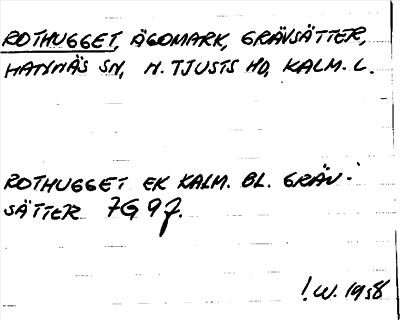 ROTHUGGET, ÄGOMARK, GRÄVSÄTTER,
HANNÄS SN, N. TJUSTS HD, KALM. L.
ROTHUGGET EK KALM. BL. GRÄV-
SÄTTER 7G 9f.
!W. 1958